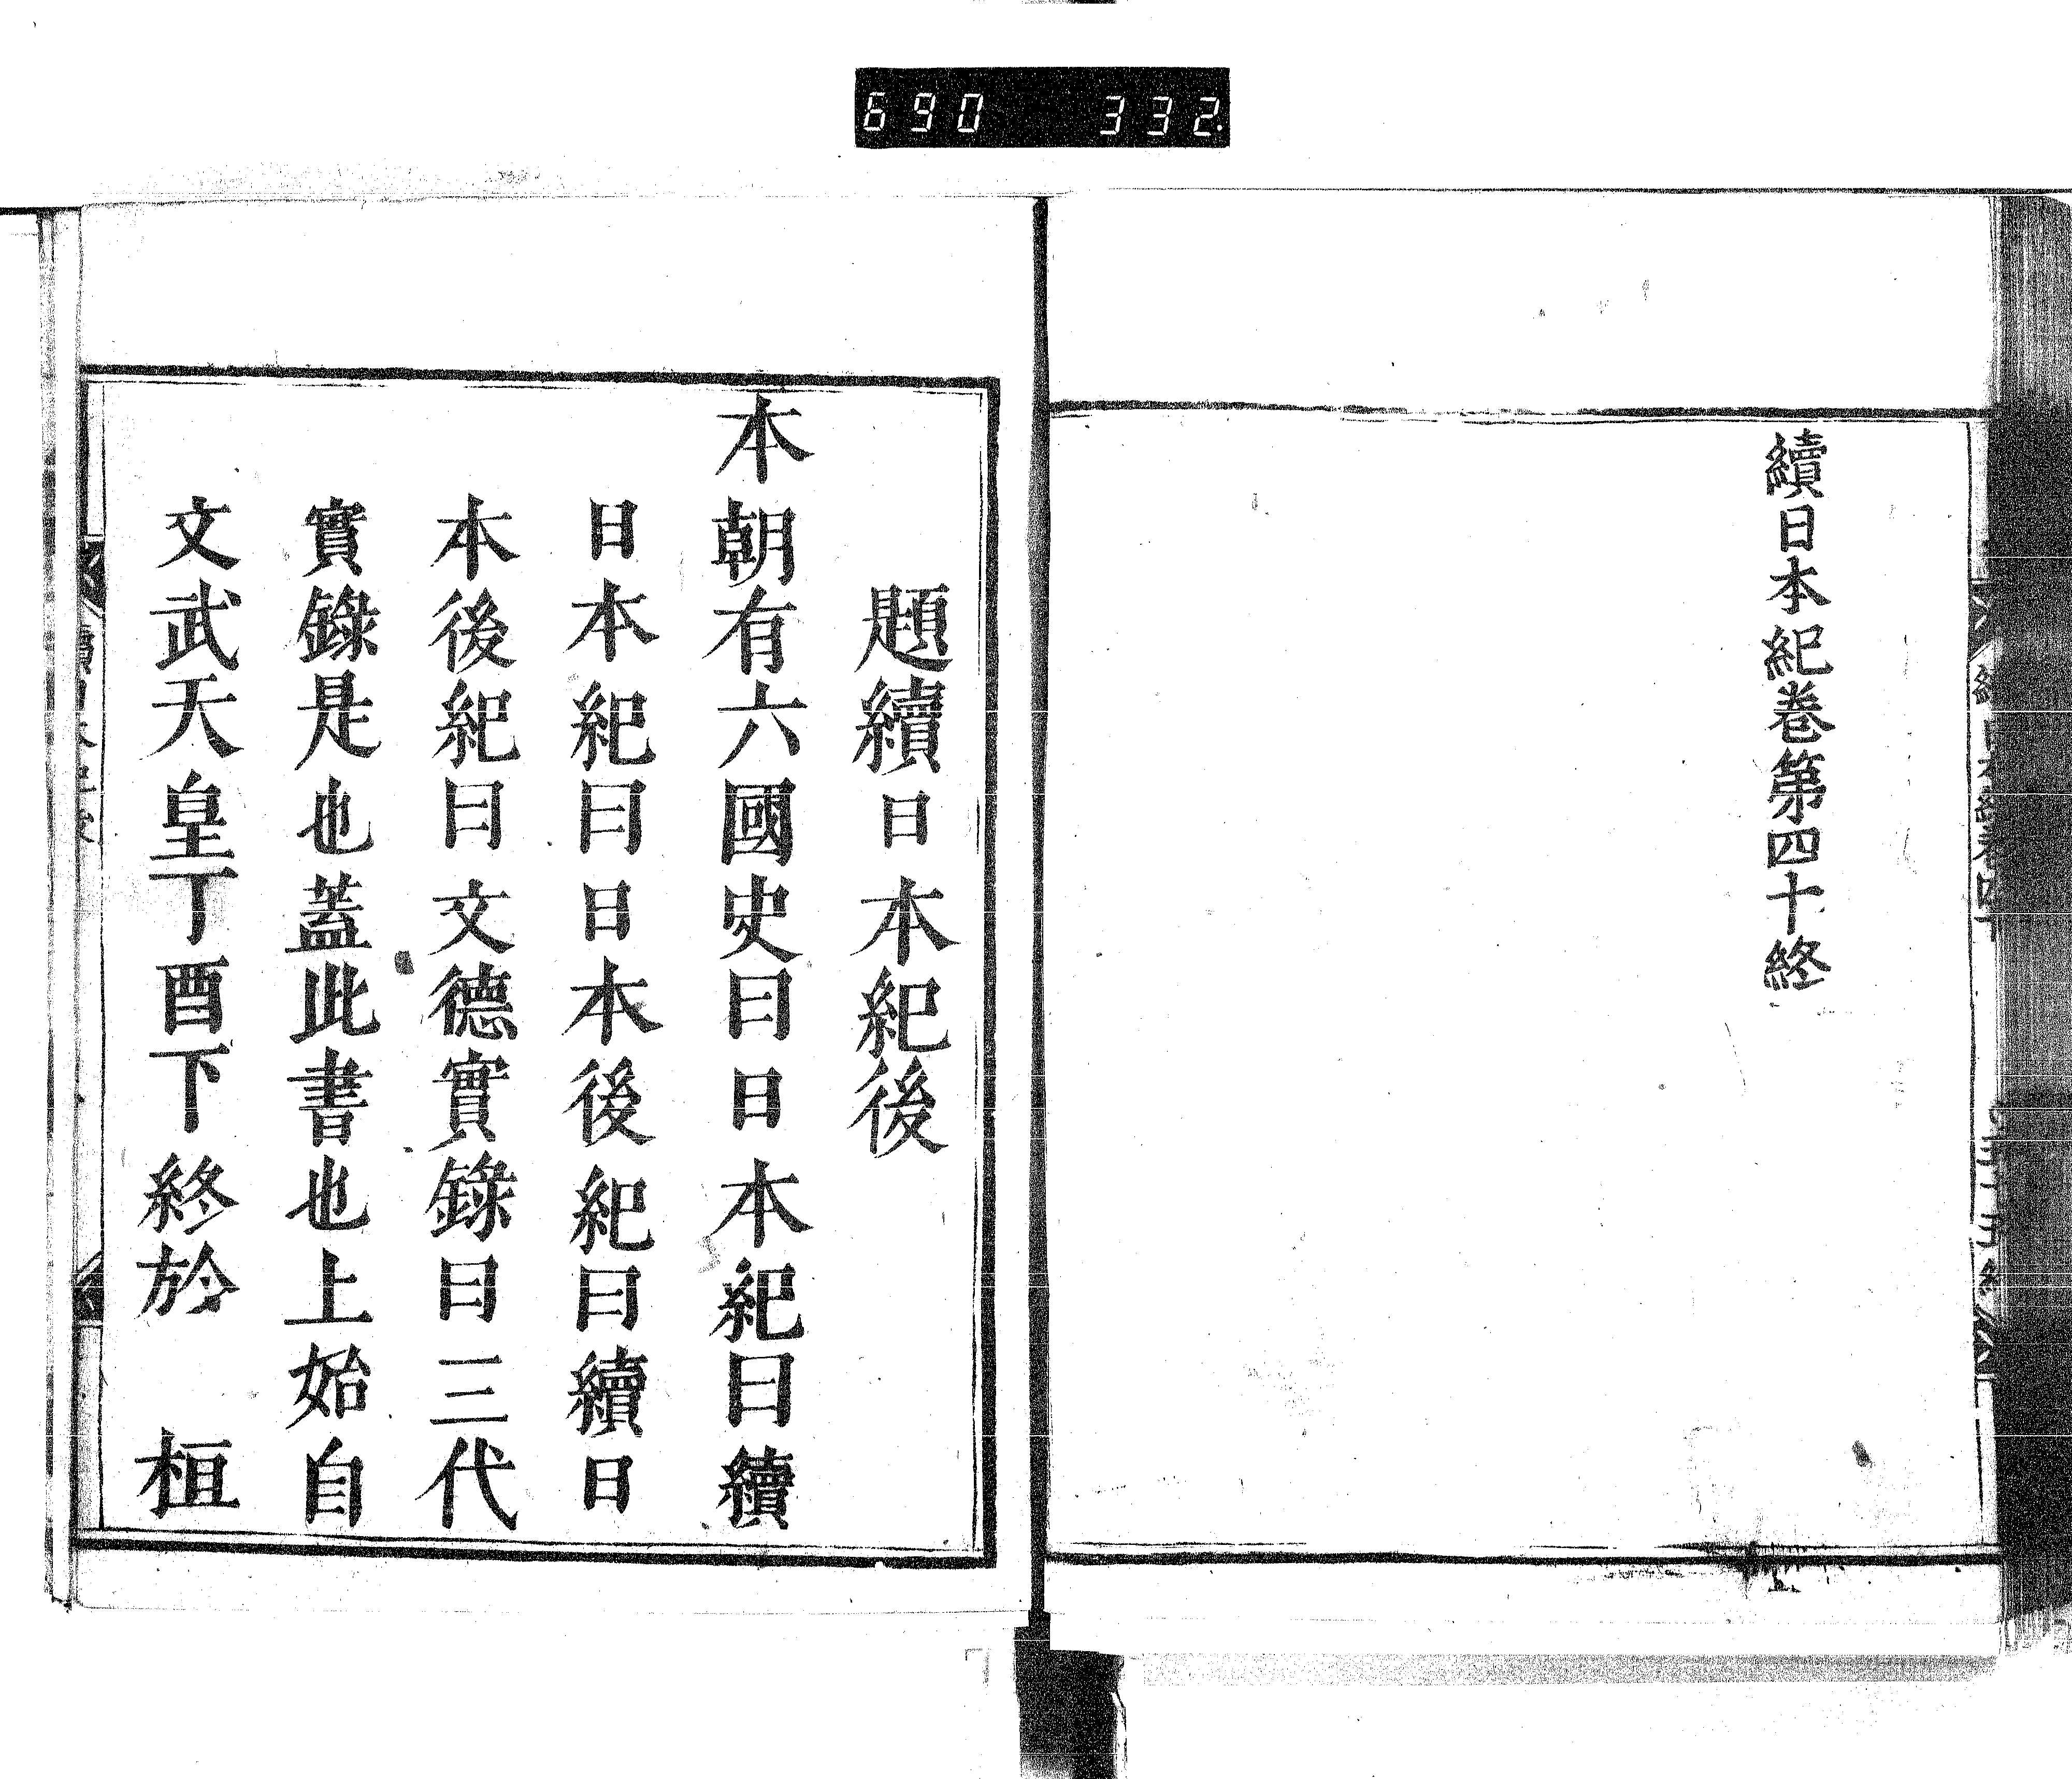 690 332.
續日本紀卷第四十終
題續日本紀後
本朝有六國史曰日本紀曰續
日本紀曰日本後紀曰續日
本後紀曰文德實錄曰三代
實錄是也蓋此書也上始自
文武天皇丁酉下終於 桓